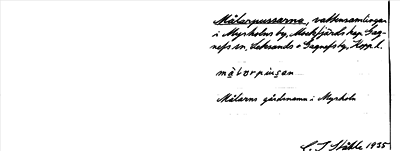 Målarpussarna, vattensamlingar
i Myrholns by, Mockfjärds kap. Gag-
nefs sn, Leksands o Gagnefs by, Kopp. l.
målarpusan
Målarns gårdsnamn i Myrholn
C. J. Ståhle 1935